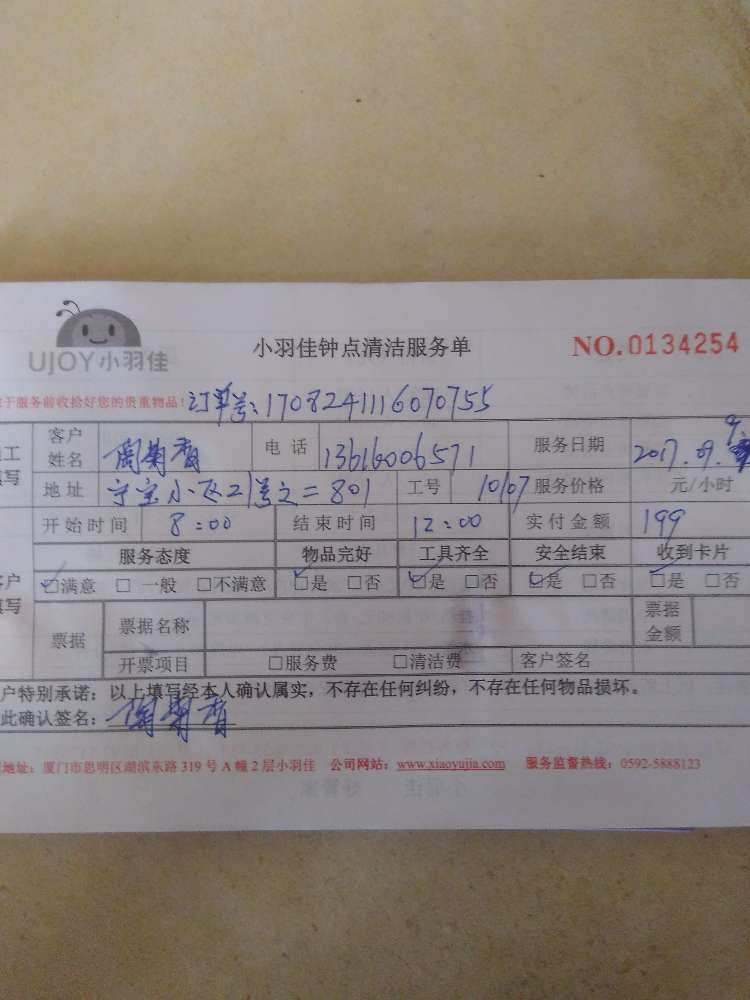 UJOY小羽佳
小羽佳钟点清洁服务单
NO.0134254
于服务前收拾好您的贵重物品！订单号:1708241116070755
客户姓名 周菊香 电话 13616006571 服务日期 2017.09.9
地址 宁宝小区21号之二801 工号 10107 服务价格 元/小时
开始时间 8:00 结束时间 12:00 实付金额 199
服务态度 物品完好 工具齐全 安全结束 收到卡片
☑满意 □一般 □不满意 ☑是 □否 ☑是 □否 ☑是 □否 ☑是 □否
票据 票据名称 票据金额
开票项目 □服务费 □清洁费 客户签名
户特别承诺：以上填写经本人确认属实，不存在任何纠纷，不存在任何物品损坏。
此确认签名：周菊香
地址：厦门市思明区湖滨东路319号A幢2层小羽佳 公司网站：www.xiaoyujia.com 服务监督热线：0592-5888123